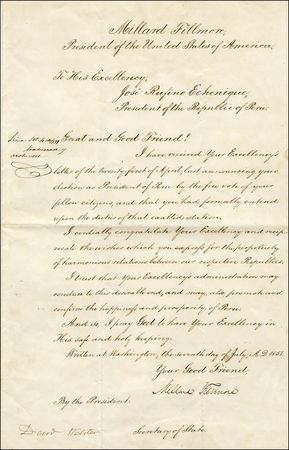 Millard Fillmore,
President of the United States of America,
To His Excellency,
José Rufino Echenique,
President of the Republic of Peru.
Great and Good Friend!
I have received Your Excellency's
letter of the twenty first of April, last announcing your
election as President of Peru by the free vote of your
fellow citizens, and that you had formally entered
upon the duties of that exalted station.
I cordially congratulate Your Excellency and recip-
rocate the wishes which you express for the perpetuity
of harmonious relations between our respective Republics.
I trust that Your Excellency's administration may
conduce to this desirable end, and may, also, promote and
confirm the happiness and prosperity of Peru.
And so, I pray God to have Your Excellency in
His safe and holy keeping.
Written at Washington, the seventh day of July, A.D. 1851.
Your Good Friend,
Millard Fillmore
By the President.
Webster
Secretary of State.